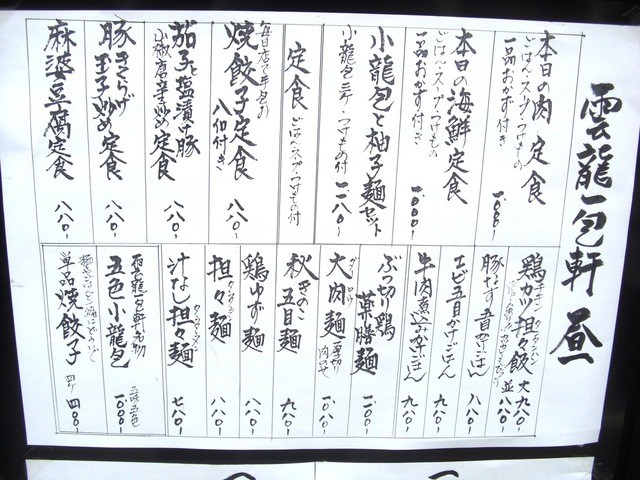 雲龍一包軒 昼
本日の肉定食
ごはん・スープ・つけもの
一品おかず付き
一、〇〇〇-
本日の海鮮定食
ごはん・スープ・つけもの
一品おかず付き
一、〇〇〇-
小龍包と柚子麺セット
小龍包三ケ・つけもの付
一、一八〇-
定食
ごはん・スープ・つけもの付
毎日店で手包み
焼餃子定食
八個付き
八八〇-
茄子と塩漬け豚
小椒唐辛炒め定食
八八〇-
豚きくらげ
玉子炒め定食
八八〇-
麻婆豆腐定食
八八〇-
鶏カツ担々飯
チキン タンタンハン
大 九八〇-
並 八八〇-
豚なす五目かけごはん
八八〇-
エビ五目かけごはん
九八〇-
牛肉煮込みかけごはん
九八〇-
ぶつ切り鶏
薬膳麺
一、一〇〇-
大肉麺
厚切り
肉のせ
一、〇八〇-
秋きのこ
五目麺
九八〇-
鶏ゆず麺
八八〇-
担々麺
タンタンメン
八八〇-
汁なし担々麺
タンタンメン
七八〇-
雲龍一包軒名物
五色小龍包
五味五色
一、〇〇〇-
単品焼餃子
四ケ
四〇〇-